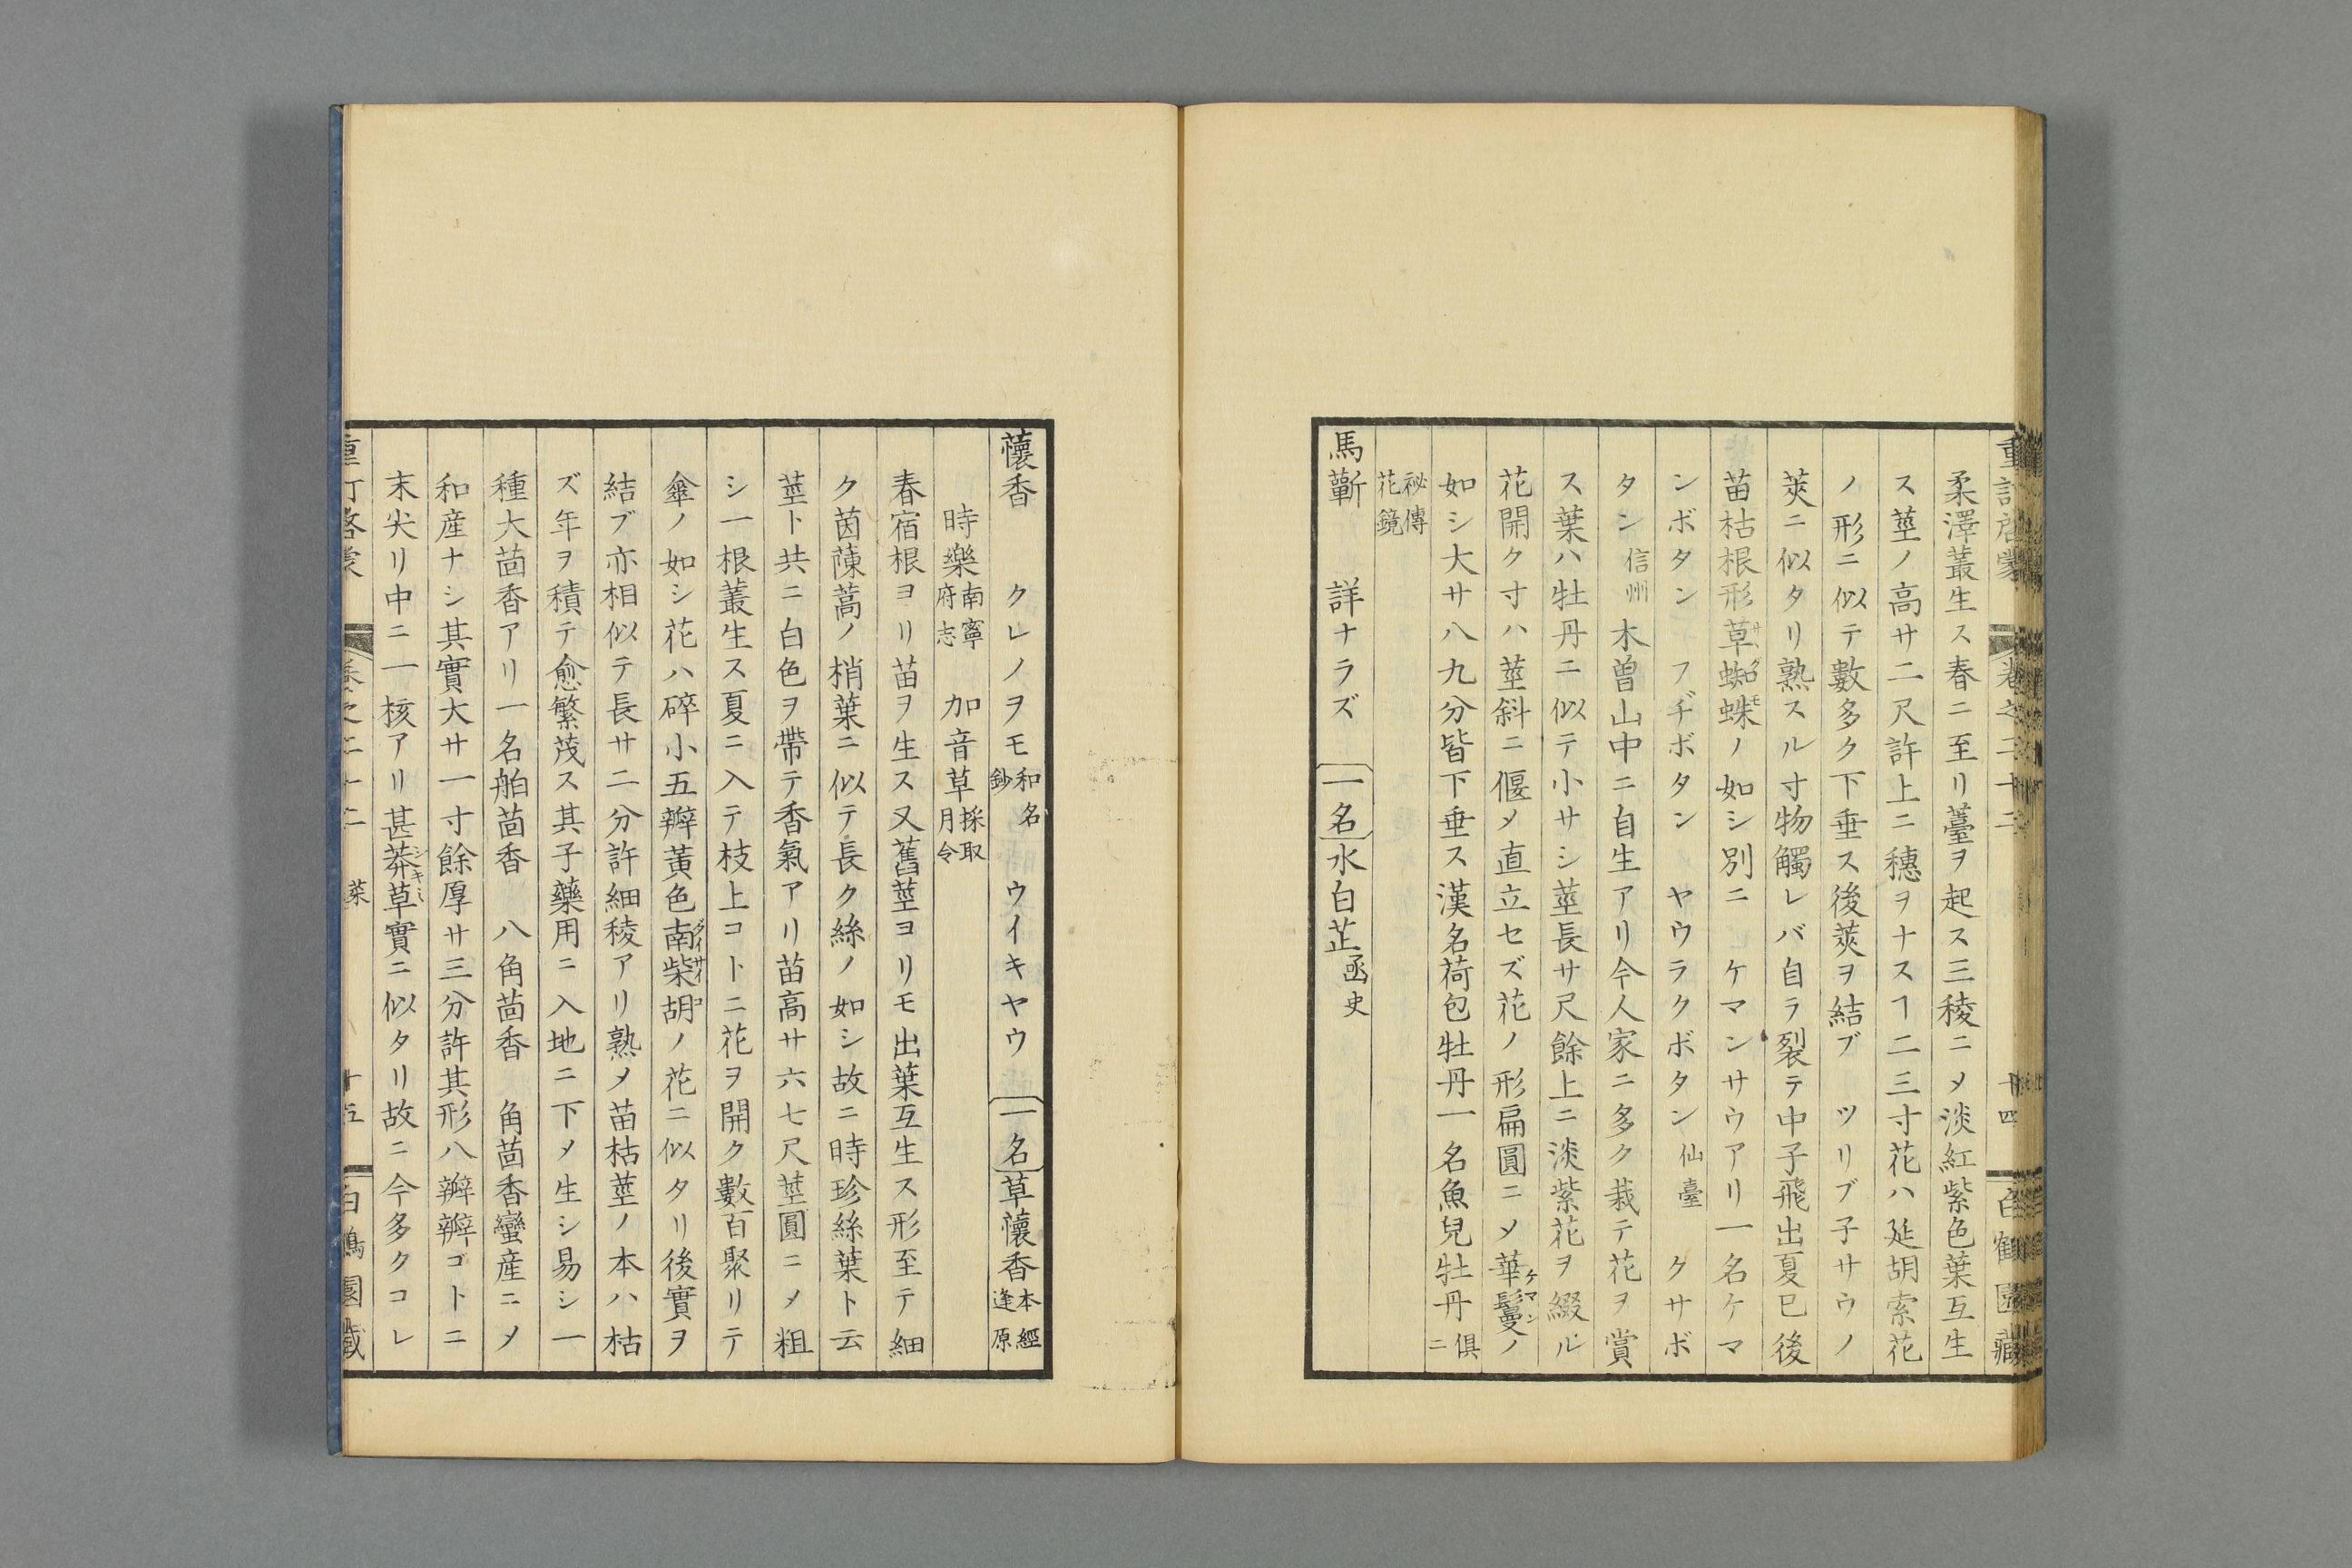 重訂啓蒙 卷之二十二 十四 白鶴園藏
柔澤叢生ス春ニ至リ薹ヲ起ス三稜ニメ淡紅紫色葉互生
ス莖ノ高サ二尺許上ニ穗ヲナスヿ二三寸花ハ延胡索花
ノ形ニ似テ數多ク下垂ス後莢ヲ結ブ ツリブ子サウノ
莢ニ似タリ熟スル寸物觸レバ自ラ裂テ中子飛出夏已後
苗枯根形草蜘蛛ノ如シ別ニ ケマンサウアリ一名ケマ
ンボタン フヂボタン ヤウラクボタン仙臺 クサボ
タン信州 木曽山中ニ自生アリ今人家ニ多ク栽テ花ヲ賞
ス葉ハ牡丹ニ似テ小サシ莖長サ尺餘上ニ淡紫花ヲ綴ル
花開ク寸ハ莖斜ニ偃メ直立セズ花ノ形扁圓ニメ華鬘ケマンノ
如シ大サ八九分皆下垂ス漢名荷包牡丹一名魚兒牡丹俱ニ
祕傳花鏡
馬蘄 詳ナラズ 一名水白芷函史
懷香 クレノヲモ和名鈔 ウイキヤウ 一名草懷香本經逢原
時樂南寧府志 加音草採取月令
春宿根ヨリ苗ヲ生ス又舊莖ヨリモ出葉互生ス形至テ細
ク茵蔯蒿ノ梢葉ニ似テ長ク絲ノ如シ故ニ時珍絲葉ト云
莖ト共ニ白色ヲ帶テ香氣アリ苗高サ六七尺莖圓ニメ粗
シ一根叢生ス夏ニ入テ枝上コトニ花ヲ開ク數百聚リテ
傘ノ如シ花ハ碎小五瓣黃色南柴胡ノ花ニ似タリ後實ヲ
結ブ亦相似テ長サ二分許細稜アリ熟メ苗枯莖ノ本ハ枯
ズ年ヲ積テ愈繁茂ス其子藥用ニ入地ニ下メ生シ易シ一
種大茴香アリ一名舶茴香 八角茴香 角茴香蠻産ニメ
和産ナシ其實大サ一寸餘厚サ三分許其形八瓣瓣ゴトニ
末尖リ中ニ一核アリ甚莽草シキミ實ニ似タリ故ニ今多クコレ
重訂啓蒙 卷之二十二 菜 十五 白鶴園藏